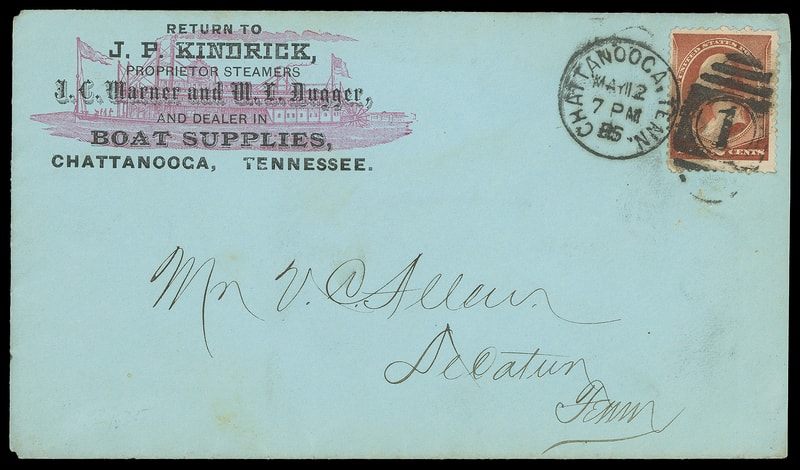 RETURN TO
J. P. KINDRICK,
PROPRIETOR STEAMERS
J. C. Warner and W. L. Dugger,
AND DEALER IN
BOAT SUPPLIES,
CHATTANOOGA, TENNESSEE.
CHATTANOOGA, TENN.
MAY 12
7 PM
85
UNITED STATES
1
CENTS
Mr V. C. Allen
Decatur
Tenn